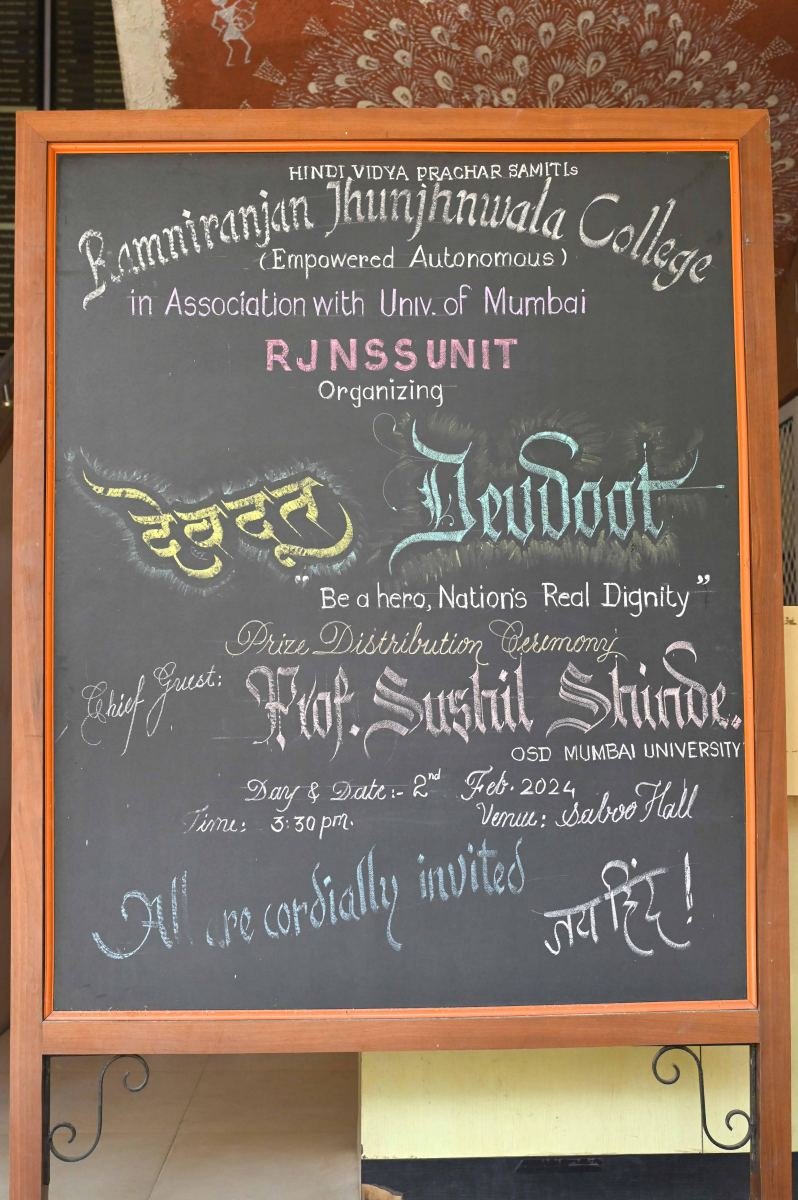 HINDI VIDYA PRACHAR SAMITI's
Ramniranjan Jhunjhnwala College
(Empowered Autonomous)
in Association with Univ. of Mumbai
RJ NSS UNIT
Organizing
देवदूत Devdoot
"Be a hero, Nation's Real Dignity"
Prize Distribution Ceremony
Chief Guest: Prof. Sushil Shinde.
OSD MUMBAI UNIVERSITY
Day & Date:- 2nd Feb. 2024
Time: 3:30 pm. Venue: Saboo Hall
All are cordially invited
जय हिंद!